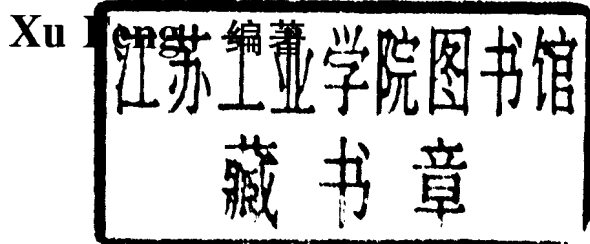 Xu Feng 编著
江苏工业学院图书馆
藏书章